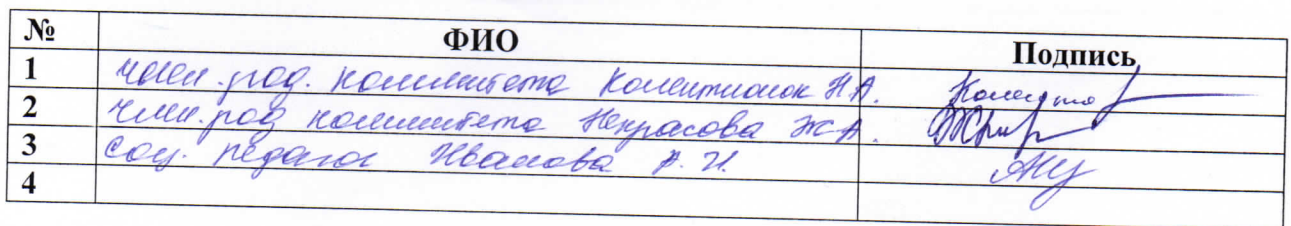 № ФИО Подпись
1 член. род. комитета Н.А.
2 член. род комитета Некрасова Ж.А.
3 Соц. педагог Иванова И.
4